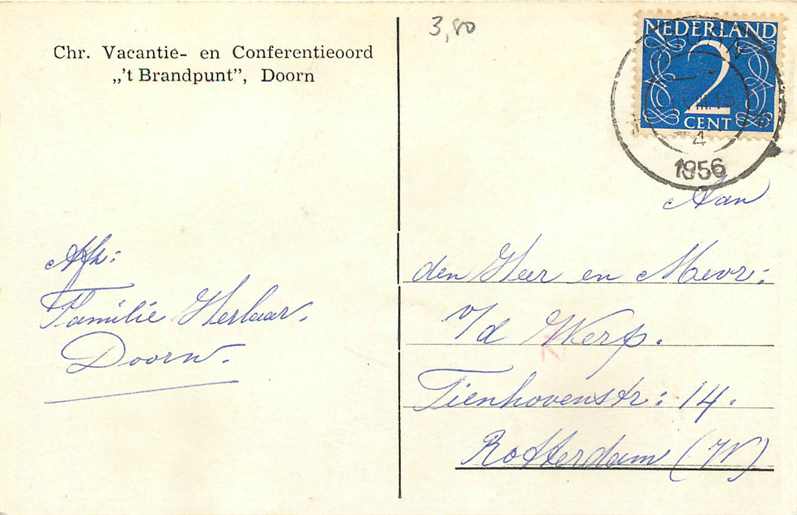 Chr. Vacantie- en Conferentieoord
„'t Brandpunt", Doorn
3,80
NEDERLAND
2
CENT
4
1956
Aan
den Heer en Mevr:
v/d Werp.
Tienhovenstr: 14.
Rotterdam (W)
Afz:
Familie Herlaar.
Doorn.